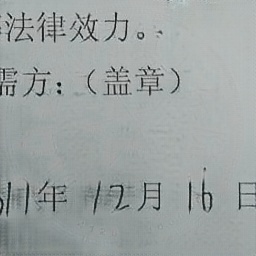 法律效力。
需方：（盖章）
011年 12月 16日